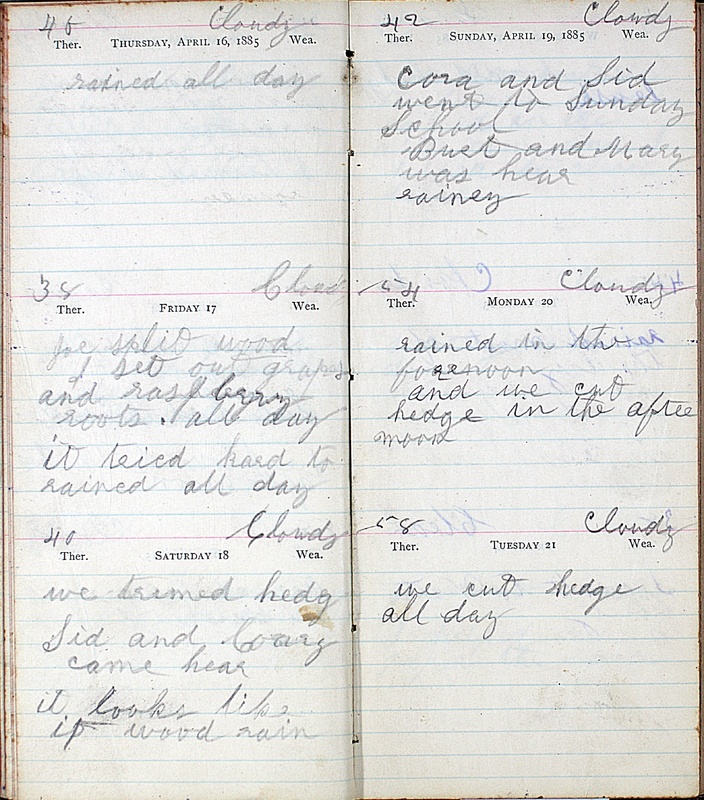 46 Cloudy
Ther. THURSDAY, APRIL 16, 1885 Wea.
rained all day
38 Cloud
Ther. FRIDAY 17 Wea.
Joe split wood
I set out grapes
and raspberry
roots. all day
it teied hard to
rained all day
40 Cloudy
Ther. SATURDAY 18 Wea.
we tremed hedg
Sid and
came hear
it looks like
if wood rain
42 Cloudy
Ther. SUNDAY, APRIL 19, 1885 Wea.
Cora and Sid
went to Sunday
School
Burt and Mary
was hear
rainey
54 Cloudy
Ther. MONDAY 20 Wea.
rained in the
forenoon
and we cut
hedge in the aftee
moon
58 Cloudy
Ther. TUESDAY 21 Wea.
we cut hedge
all day